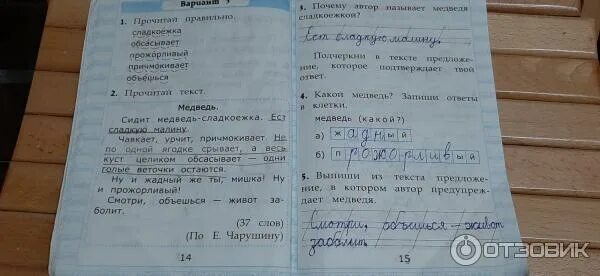 Вариант 3
1. Прочитай правильно.
сладкоежка
обсасывает
прожорливый
причмокивает
объешься
2. Прочитай текст.
Медведь.
Сидит медведь-сладкоежка. Ест
сладкую малину.
Чавкает, урчит, причмокивает. Не
по одной ягодке срывает, а весь
куст целиком обсасывает — одни
голые веточки остаются.
Ну и жадный же ты, мишка! Ну
и прожорливый!
Смотри, объешься — живот за-
болит.
(37 слов)
(По Е. Чарушину)
14
3. Почему автор называет медведя
сладкоежкой?
Ест сладкую малину.
Подчеркни в тексте предложе-
ние, которое подтверждает твой
ответ.
4. Какой медведь? Запиши ответы
в клетки.
медведь (какой?)
а) жадный
б) прожорливый
5. Выпиши из текста предложе-
ние, в котором автор предупреж-
дает медведя.
Смотри, объешься — живот
заболит.
15
ОТЗОВИК